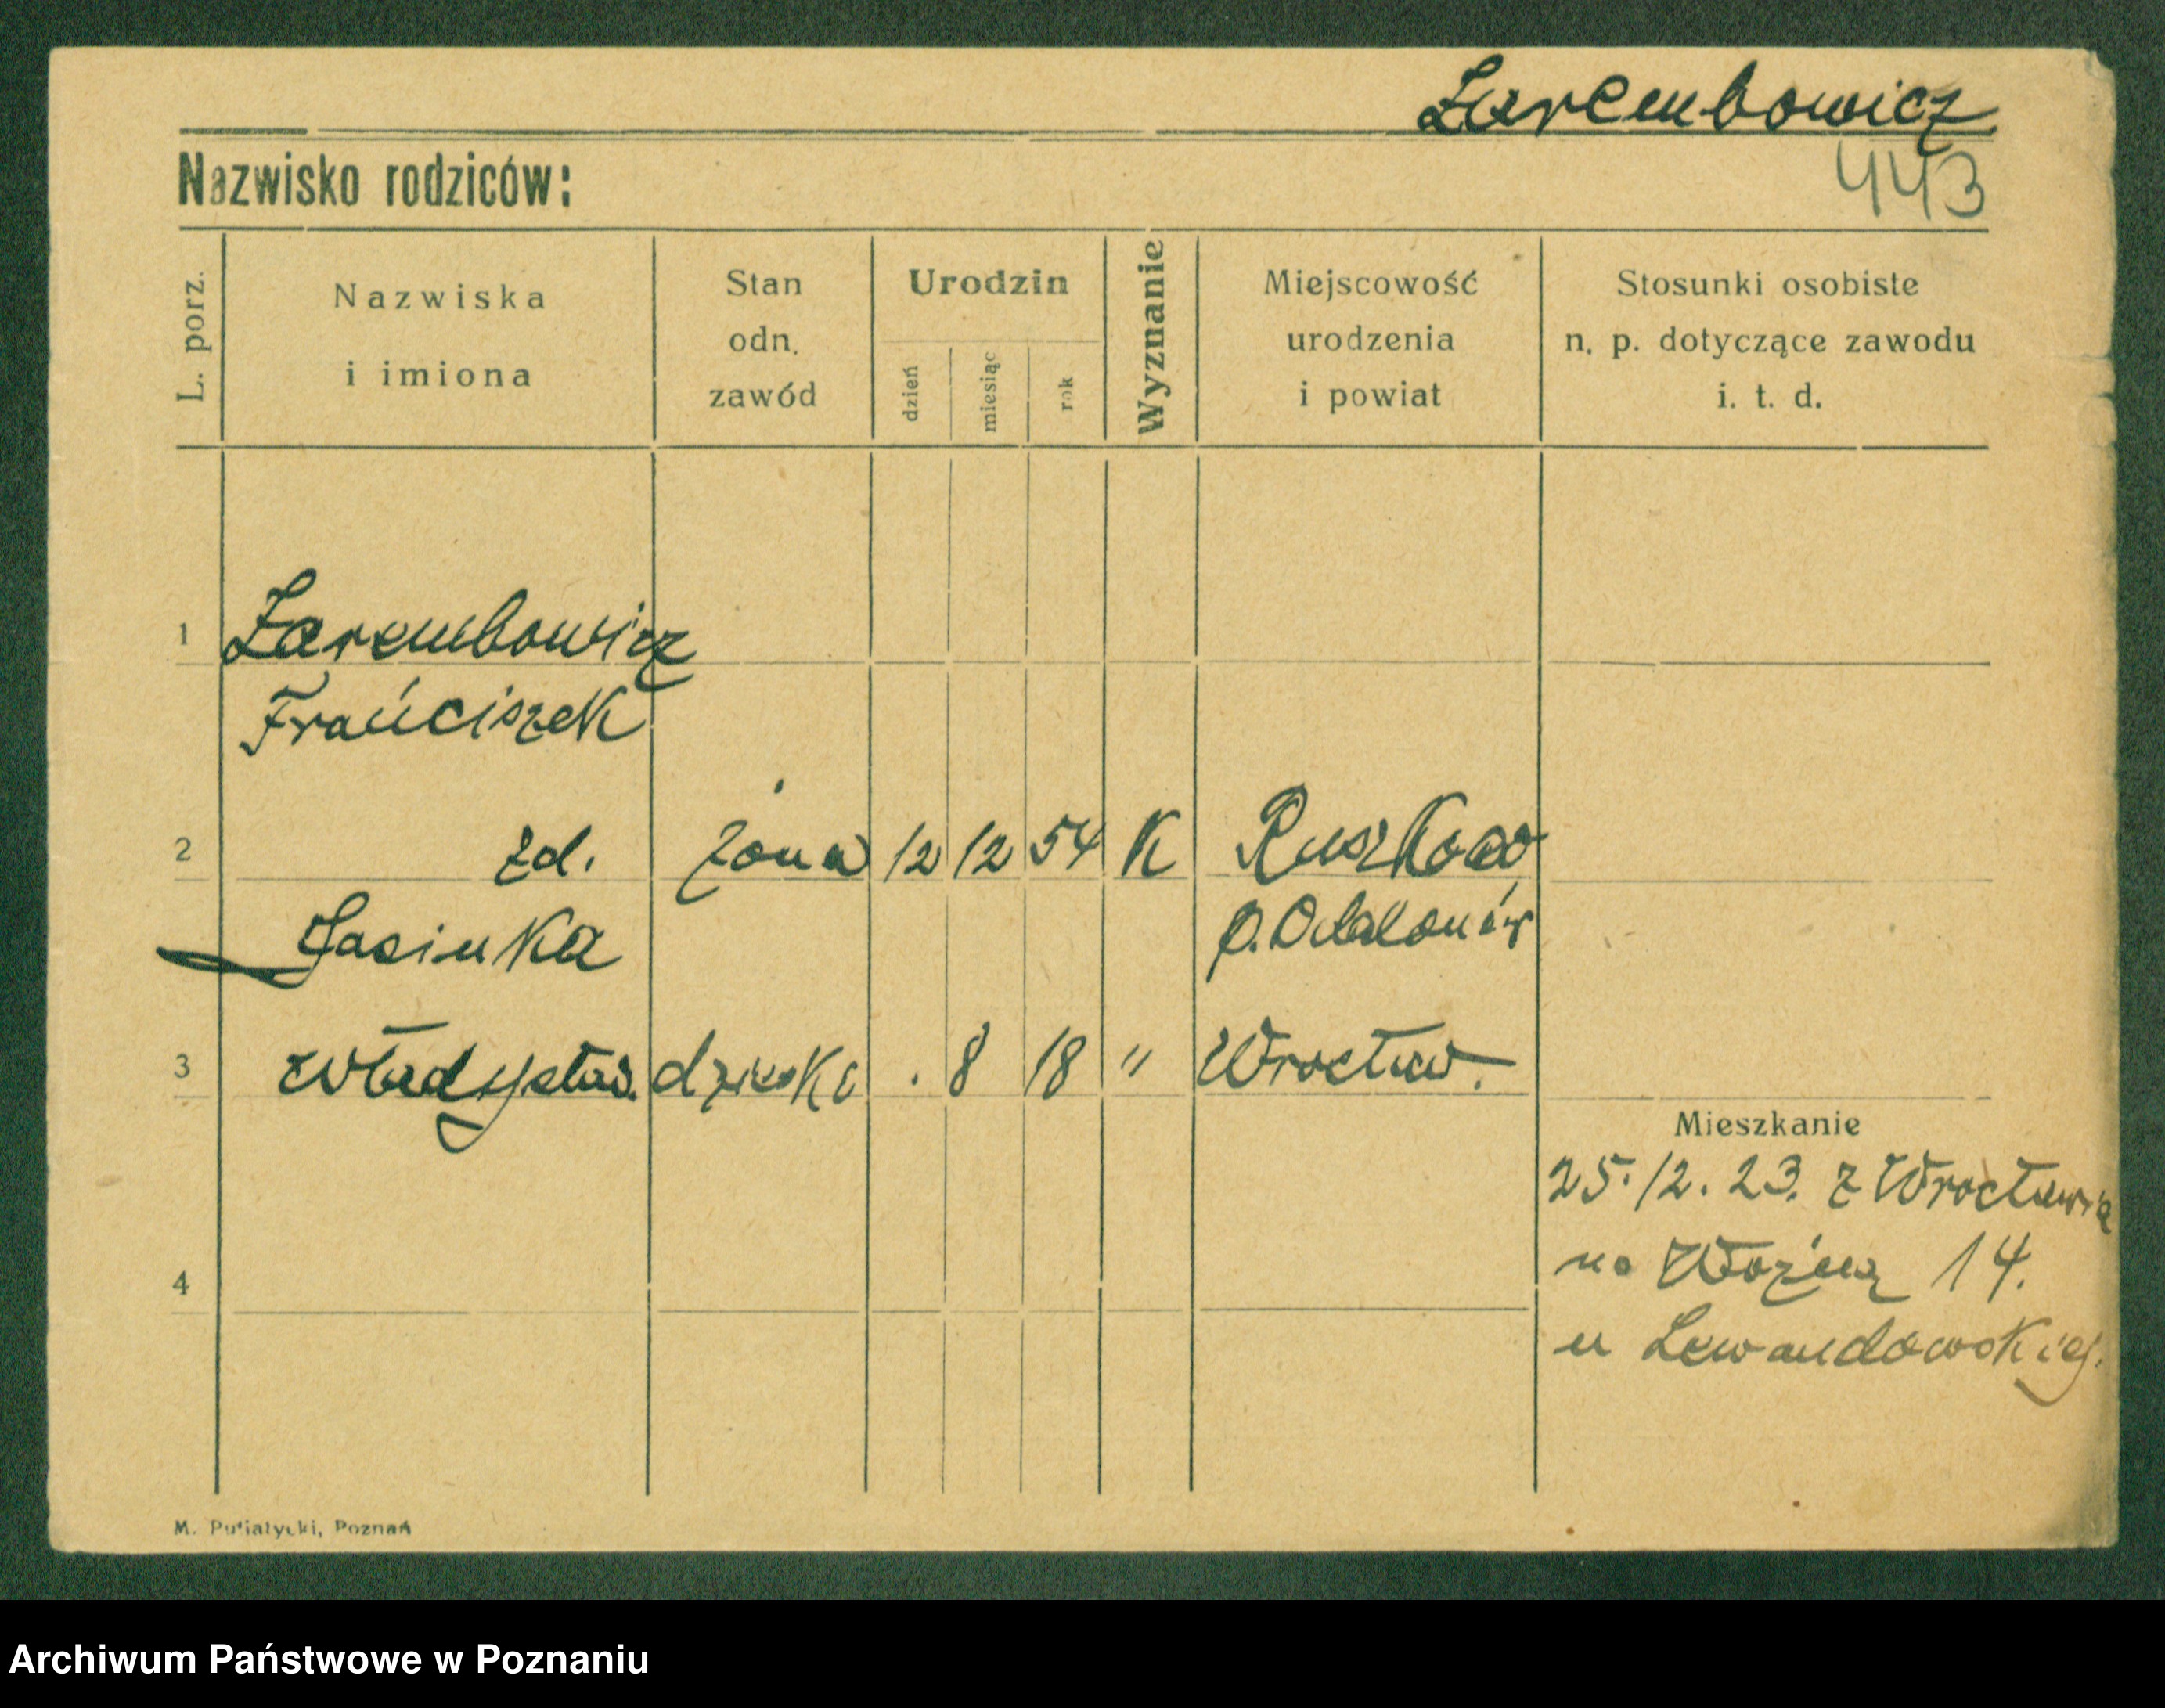 Zarembowicz
443
Nazwisko rodziców:
L. porz.
Nazwiska
i imiona
Stan
odn.
zawód
Urodzin
dzień
miesiąc
rok
Wyznanie
Miejscowość
urodzenia
i powiat
Stosunki osobiste
n. p. dotyczące zawodu
i. t. d.
1 Zarembowicz
Franciszek
2 zd. żona 12 12 54 K Ruszkow
Jasinka p. Odalonów
3 Władysław. dziecko . 8 18 " Wrocław.
Mieszkanie
25. 12. 23. z Wrocławia
na Woźną 14.
4
u Lewandowskiej.
M. Putiatycki, Poznań
Archiwum Państwowe w Poznaniu